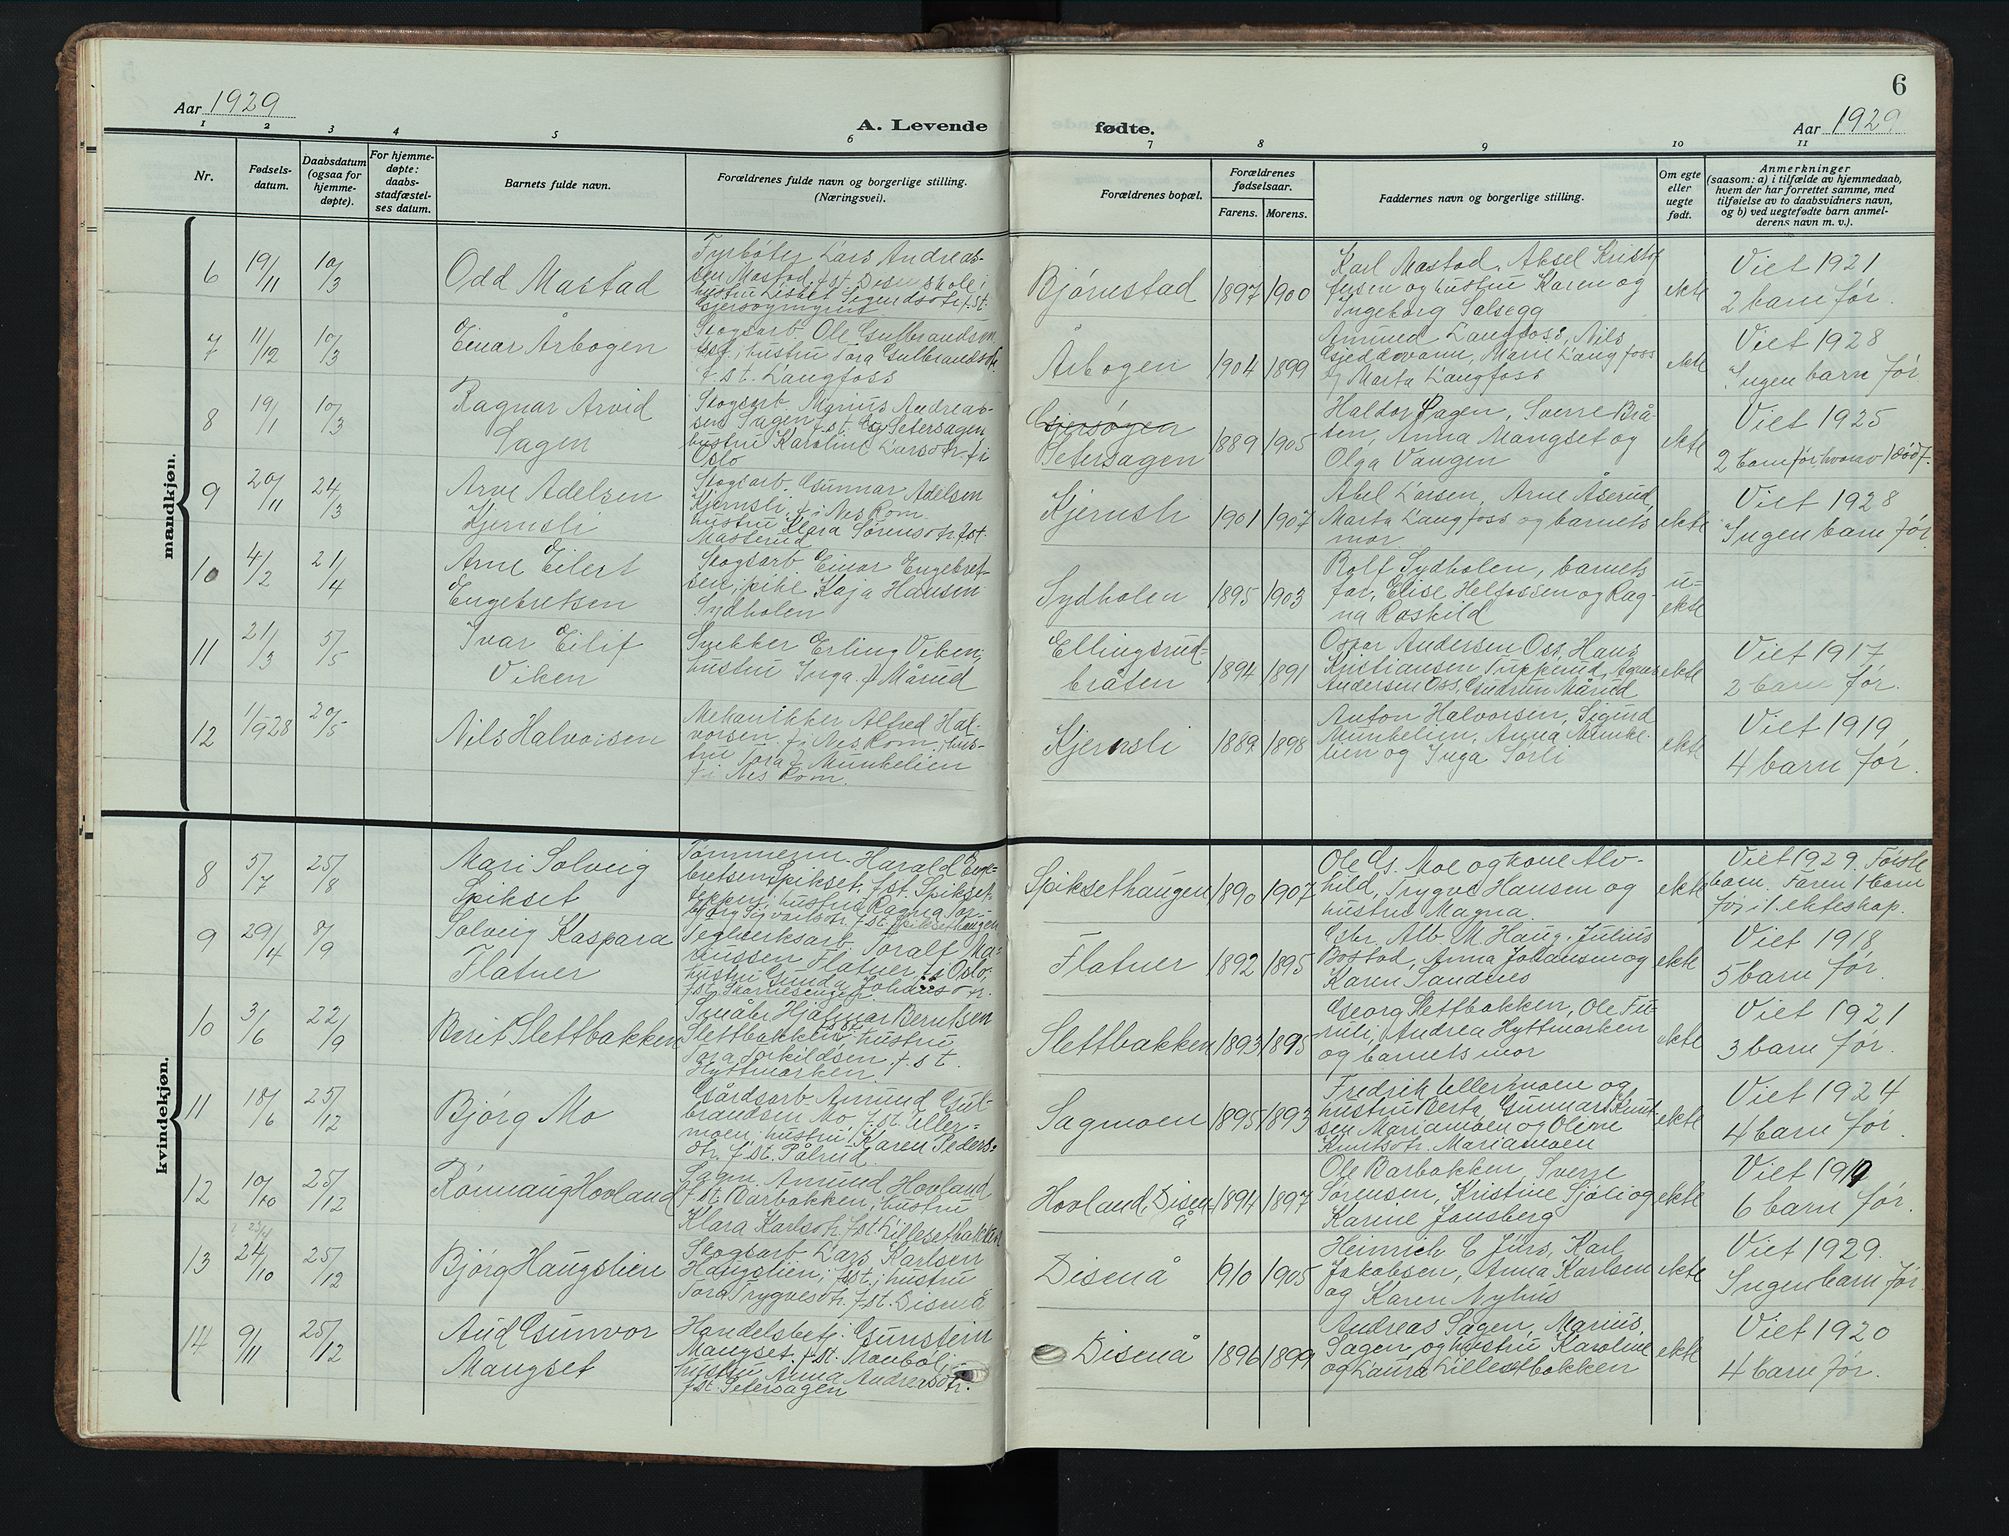 Aar 1929
A. Levende
fødte.
6
Aar 1929
1 2 3 4 5 6 7 8 9 10 11
Nr.
Fødsels-
datum.
Daabsdatum
(ogsaa for
hjemme-
døpte).
For hjemme-
døpte:
daabs-
stadfæstel-
ses datum.
Barnets fulde navn.
Forældrenes fulde navn og borgerlige stilling.
(Næringsvei).
Forældrenes bopæl.
Forældrenes
fødselsaar.
Farens. Morens.
Faddernes navn og borgerlige stilling.
Om egte
eller
uegte
født.
Anmerkninger
(saasom: a) i tilfælde av hjemmedaab,
hvem der har forrettet samme, med
tilføielse av to daabsvidners navn,
og b) ved uegtefødte barn anmel-
derens navn m. v.).
mandkjøn.
6 19/11 10/3
Odd Mastad
Fyrbøter Lars Andreas-
sen Mastad, f. st. Disen skole;
hustru Lisbet Sigurdsdtr. f. st.
Bjørnstad 1897 1900
Karl Mastad, Aksel Kristof
fersen og hustru Karen og
Ingeborg Salsegg
ekte
Viet 1921
2 barn før.
7 11/12 10/3
Einar Årbogen
Skogsarb. Ole Gulbrandsen
f. st. Langfoss
Årbogen 1904 1899
Amund Langfoss, Nils
Gjeddevann, Marie Langfoss
og Marta Langfoss
ekte
Viet 1928
Ingen barn før
8 19/1 10/3
Ragnar Arvid
Sagen
Skogsarb. Marius Andreas-
sen Sagen f. st. og Setersagen
hustru Karoline Larsdtr. f. i
Oslo
Gjersøyen
Setersagen 1889 1905
Haldor Sagen, Sverre Brå-
ten, Anna Mangset og
Olga Vangen
ekte
Viet 1925
2 barn før, hvorav 1 død f.
9 20/11 24/3
Arve Adelsen
Kjernsli
Skogsarb. Gunnar Adelsen
Kjernsli, f. i Nes Rom.
hustru Klara Sørensdtr. f. st.
Masterud
Kjernsli 1901 1907
Abel Larsen, Arne Åserud,
Marta Langfoss og barnets
mor
ekte
Viet 1928
Ingen barn før.
10 4/2 21/4
Arne Eilert
Engebretsen
Skogsarb. Einar Engebret-
sen; pike Kaja Hansen
Sydholen
Sydholen 1895 1903
Rolf Sydholen, barnets
far, Elise Helfossen og Rag-
na Roskild
u-
ekte
11 21/3 5/5
Ivar Eilif
Viken
Snikker Erling Viken;
hustru Inga f. Mårud
Ellingsrud-
bråten 1894 1891
Oskar Andersen Oss, Hans
Kristiansen Tripperud, Agnes
Andersen Oss, Gudrun Mårud
ekte
Viet 1917
2 barn før.
12 1/9 28 20/5
Nils Halvorsen
Mekanikker Alfred Hal-
vorsen f. i Nes Rom.; hus-
tru Tora f. Munkelien
f. i Nes Rom.
Kjernsli 1889 1898
Anton Halvorsen, Sigurd
Munkelien, Anna Munke-
lien og Inga Sørli
ekte
Viet 1919
4 barn før.
kvindekjøn.
8 5/7 25/8
Mari Solveig
Spikset
Tømmerm. Harald Enge-
bretsen Spikset, f. st. Spikset-
Spiksethaugen 1890 1907
Ole G. Moe og kone Alv-
hild, Trygve Hansen og
hustru Magna.
ekte
Viet 1929. Første
barn. Faren 1 barn
før i 1. ekteskap.
9 29/4 8/9
Solveig Kaspara
Flatner
Teglverksarb. Toralf Ma-
Flatner, f. i Oslo;
hustru Gunda Johansdtr.
f. st. Skarnesengen
Flatner 1892 1895
Gbr. Alb. M. Haug, Julius
Bostad, Anna Johansen og
Karen Sandnes
ekte
Viet 1918
5 barn før.
10 3/6 22/9
Berit Slettbakken
Småbr. Hjalmar Berntsen
Slettbakken f. st.; hustru
Tora Torkildsen f. st.
Hyttmarken.
Slettbakken 1893 1895
Georg Slettbakken, Ole Fu-
ruli, Andrea Hyttmarken
og barnets mor
ekte
Viet 1921
3 barn før.
11 18/6 25/12
Bjørg Mo
Gårdsarb. Amund Gul-
brandsen Mo, f. st. Uller-
moen, hustru Karen Peders-
dtr. f. st. Pålrud.
Sagmoen 1895 1893
Fredrik Ullermoen og
hustru Berta, Gunnar Knut-
sen Mariamoen og Oline
Knutsdtr. Mariamoen
ekte
Viet 1924
4 barn før.
12 10/10 25/12
Rønnaug Hovland
Sagm. Amund Hovland
f. st. Barbakken; hustru
Klara Karlsdtr. f. st. Lillesetbakken
Hovland, Disen-
å 1894 1897
Ole Barbakken, Sverre
Sørensen, Kristine Sjøli og
Karine Jonsberg
ekte
6 barn før.
13 24/10 25/12
Bjørg Haugslien
Skogsarb. Lars Karlsen
Haugslien; f. st.; hustru
Tora Trygvesdtr. f. st. Disenå
Disenå 1910 1905
Heinrich C. Jürs, Karl
Jakobsen, Anna Karlsen
og Karen Nyhus
ekte
Viet 1929.
Ingen barn før.
14 9/11 25/12
Aud Gunvor
Mangset
Handelsbetj. Gunstein
Mangset, f. st. Tronbøl;
hustru Anna Andreasdtr.
f. st. Setersagen
Disenå 1896 1899
Andreas Sagen, Marius
Sagen, og hustru Karoline
og Laura Lillesetbakken
ekte
Viet 1920
4 barn før.